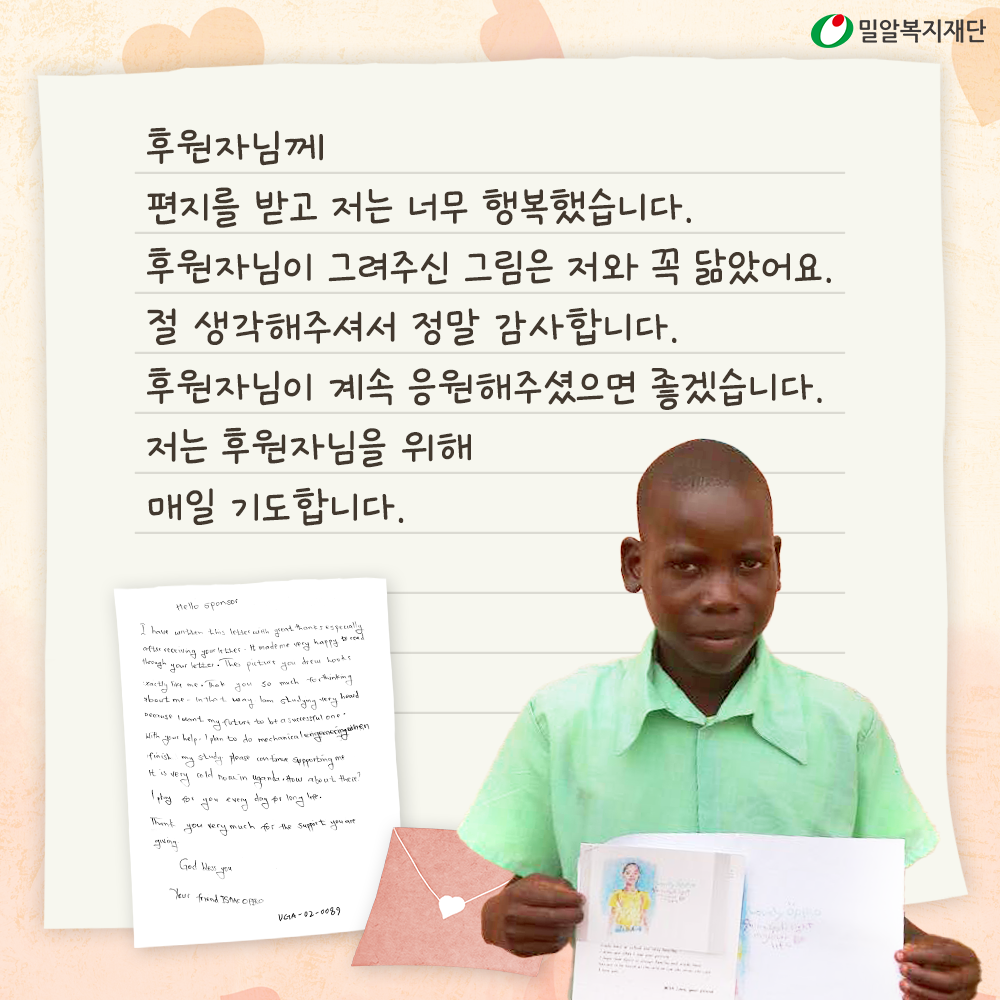 밀알복지재단
후원자님께
편지를 받고 저는 너무 행복했습니다.
후원자님이 그려주신 그림은 저와 꼭 닮았어요.
절 생각해주셔서 정말 감사합니다.
후원자님이 계속 응원해주셨으면 좋겠습니다.
저는 후원자님을 위해
매일 기도합니다.
Hello sponsor
I have written this letter with great thanks especially
after receiving your letter. It made me very happy to read
through your letter. The picture you drew looks
exactly like me. Thank you so much for thinking
about me. In that way I am studying very hard
because I want my future to be a successful one.
With your help. I plan to do mechanical engineering when
finish my study please continue supporting me
It is very cold now in Uganda. How about there?
I pray for you every day for long life.
Thank you very much for the support you are
giving
God bless you
Your friend
UGA-02-0089
Lovely
Lovely